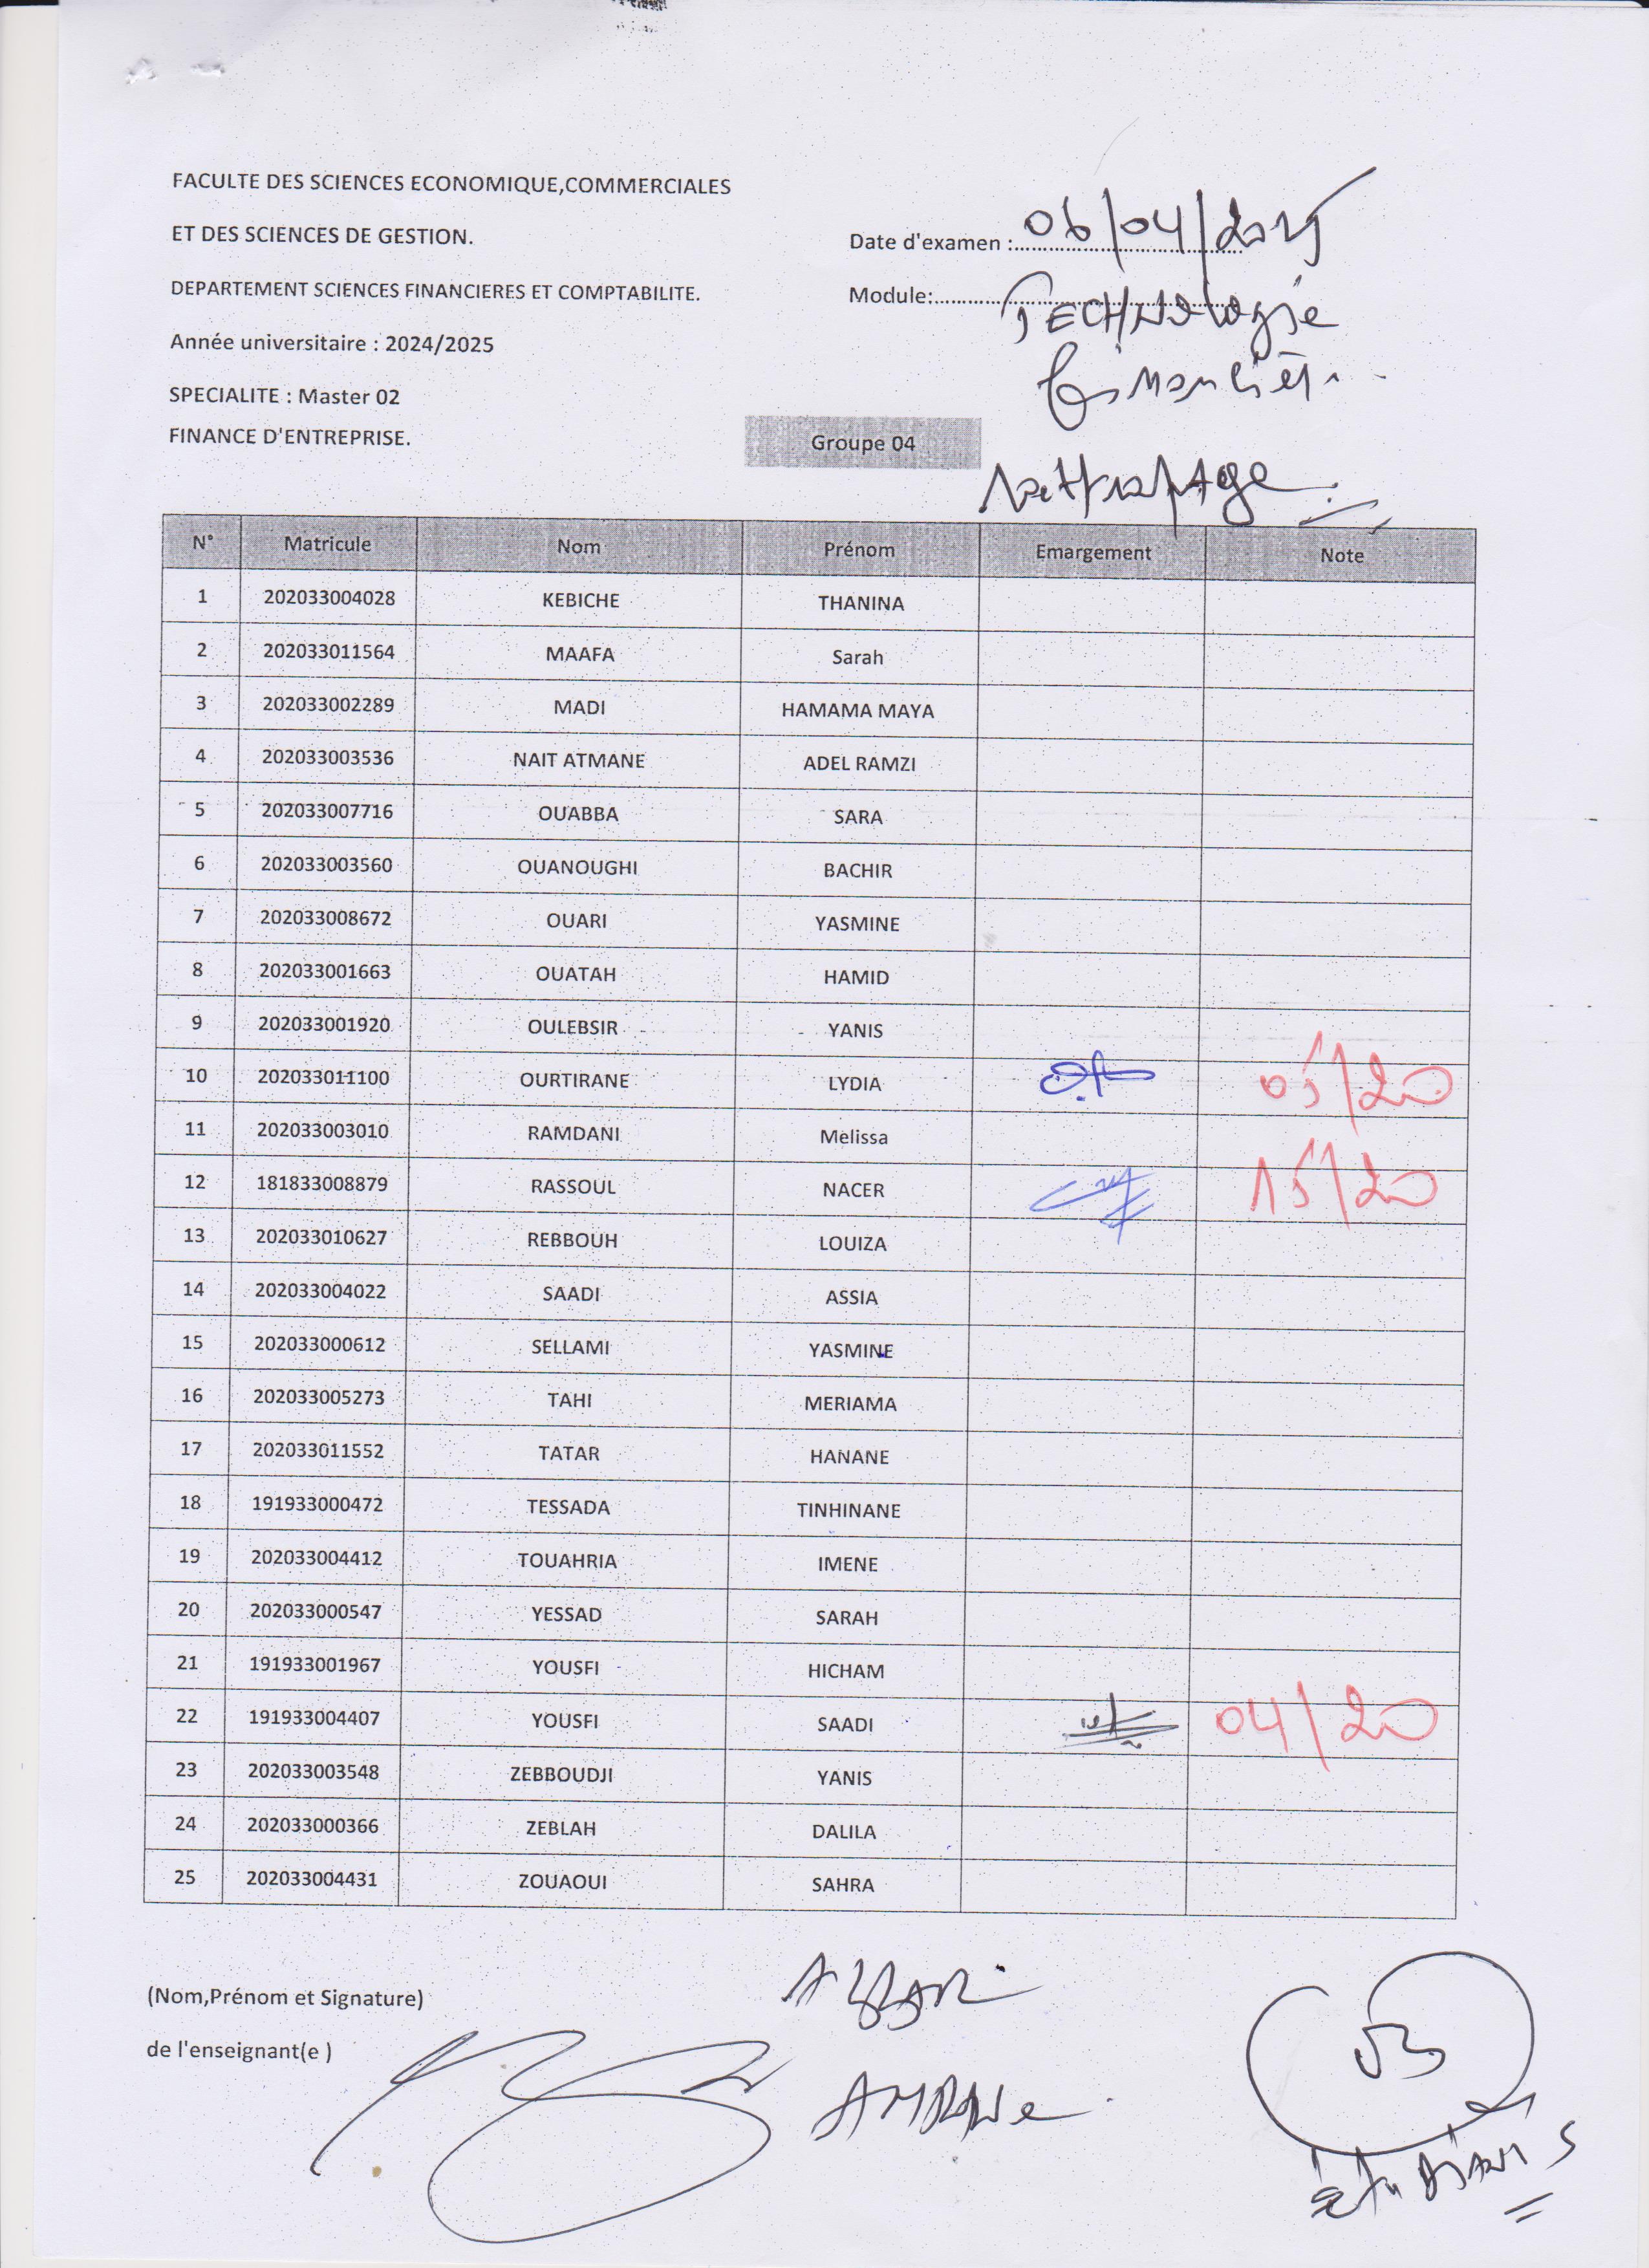 FACULTE DES SCIENCES ECONOMIQUE,COMMERCIALES
ET DES SCIENCES DE GESTION.
Date d'examen :.......... 06/04/2025
DEPARTEMENT SCIENCES FINANCIERES ET COMPTABILITE.
Module:.......... TECHNologie
Année universitaire : 2024/2025
SPECIALITE : Master 02
FINANCE D'ENTREPRISE.
Groupe 04
rattrapage
N° Matricule Nom Prénom Emargement Note
1 202033004028 KEBICHE THANINA
2 202033011564 MAAFA Sarah
3 202033002289 MADI HAMAMA MAYA
4 202033003536 NAIT ATMANE ADEL RAMZI
5 202033007716 OUABBA SARA
6 202033003560 OUANOUGHI BACHIR
7 202033008672 OUARI YASMINE
8 202033001663 OUATAH HAMID
9 202033001920 OULEBSIR YANIS
10 202033011100 OURTIRANE LYDIA 05/20
11 202033003010 RAMDANI Melissa
12 181833008879 RASSOUL NACER 15/20
13 202033010627 REBBOUH LOUIZA
14 202033004022 SAADI ASSIA
15 202033000612 SELLAMI YASMINE
16 202033005273 TAHI MERIAMA
17 202033011552 TATAR HANANE
18 191933000472 TESSADA TINHINANE
19 202033004412 TOUAHRIA IMENE
20 202033000547 YESSAD SARAH
21 191933001967 YOUSFI HICHAM
22 191933004407 YOUSFI SAADI 04/20
23 202033003548 ZEBBOUDJI YANIS
24 202033000366 ZEBLAH DALILA
25 202033004431 ZOUAOUI SAHRA
(Nom,Prénom et Signature)
de l'enseignant(e )
AMRANe
03
étudiants